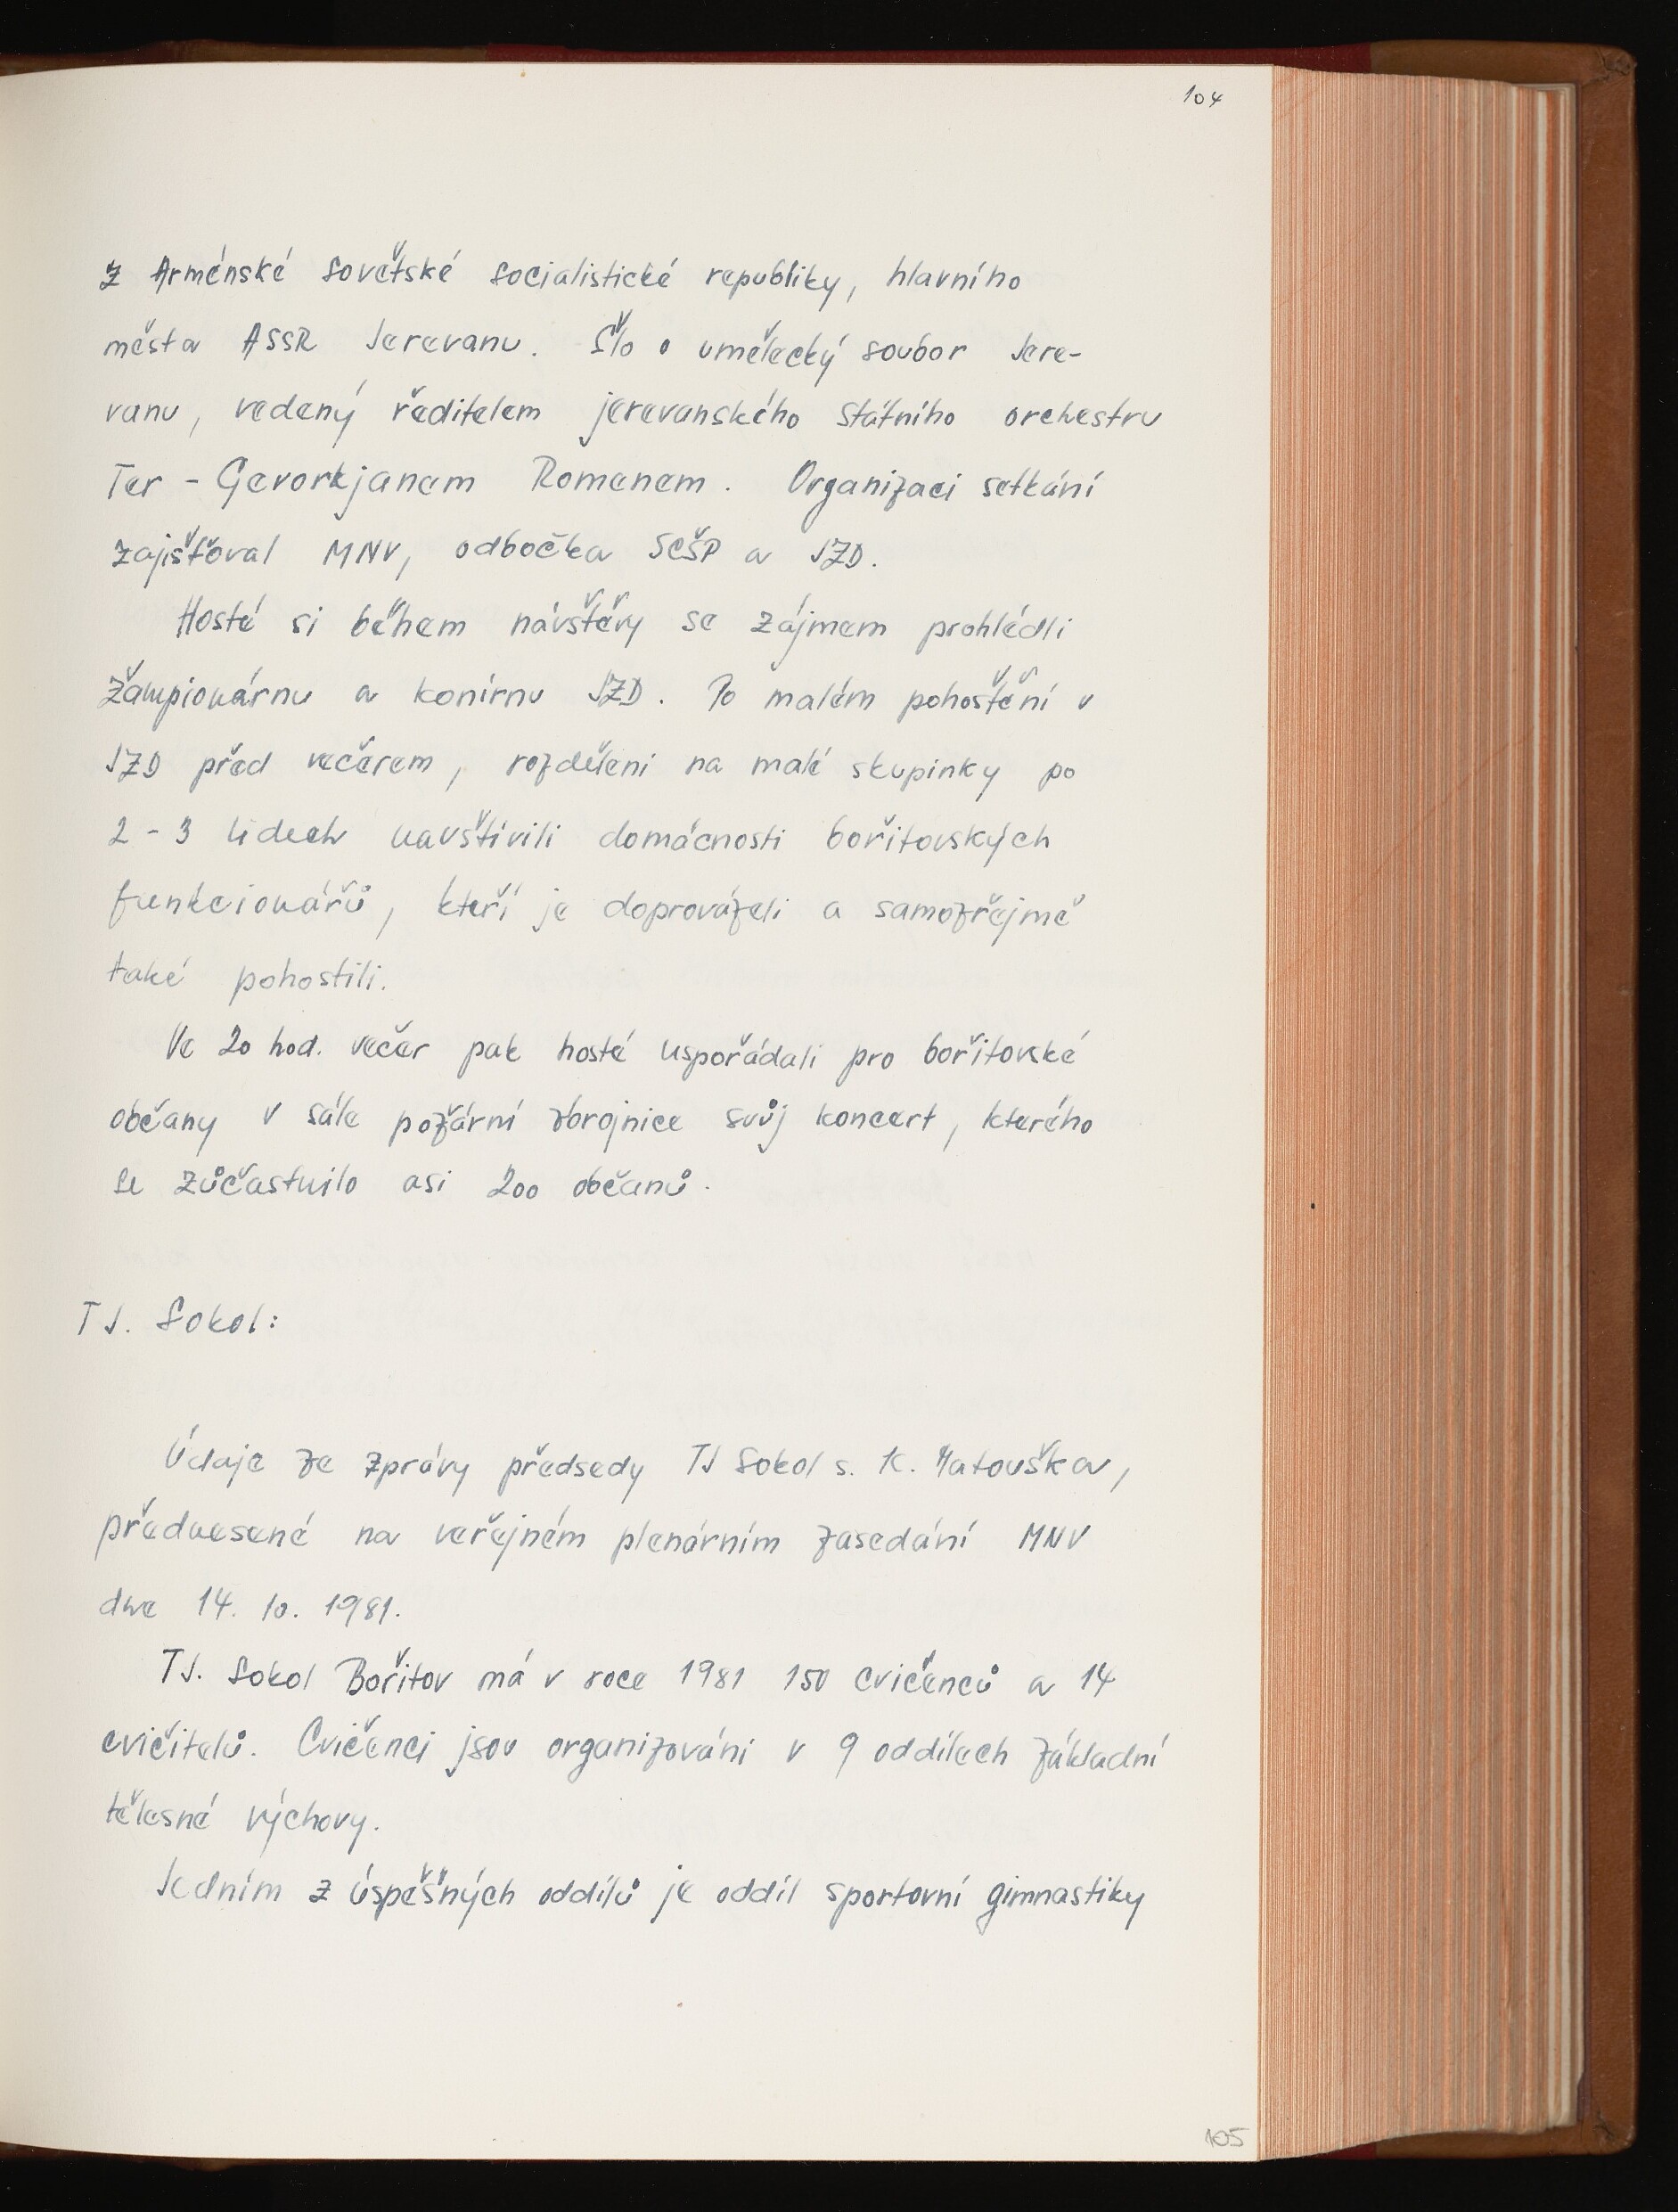 104
z Arménské sovětské socialistické republiky, hlavního
města ASSR Jerevanu. Šlo o umělecký soubor Jere-
vanu, vedený ředitelem jerevanského státního orchestru
Ter - Gevorkjanem Romenem. Organizaci setkání
zajišťoval MNV, odbočka SČSP a JZD.
Hosté si během návštěvy se zájmem prohlédli
žampionárnu a konírnu JZD. Po malém pohoštění v
JZD před večerem, rozděleni na malé skupinky po
2 - 3 lidech navštívili domácnosti bořitovských
funkcionářů, kteří je doprovázeli a samozřejmě
také pohostili.
Ve 20 hod. večer pak hosté uspořádali pro bořitovské
občany v sále požární zbrojnice svůj koncert, kterého
se zůčastnilo asi 200 občanů.
TJ. Sokol:
Údaje ze zprávy předsedy TJ Sokol s. K. Matouška,
přednesené na veřejném plenárním zasedání MNV
dne 14. 10. 1981.
TJ. Sokol Bořitov má v roce 1981 150 cvičenců a 14
cvičitelů. Cvičenci jsou organizováni v 9 oddílech základní
tělesné výchovy.
Jedním z úspěšných oddílů je oddíl sportovní gimnastiky
105